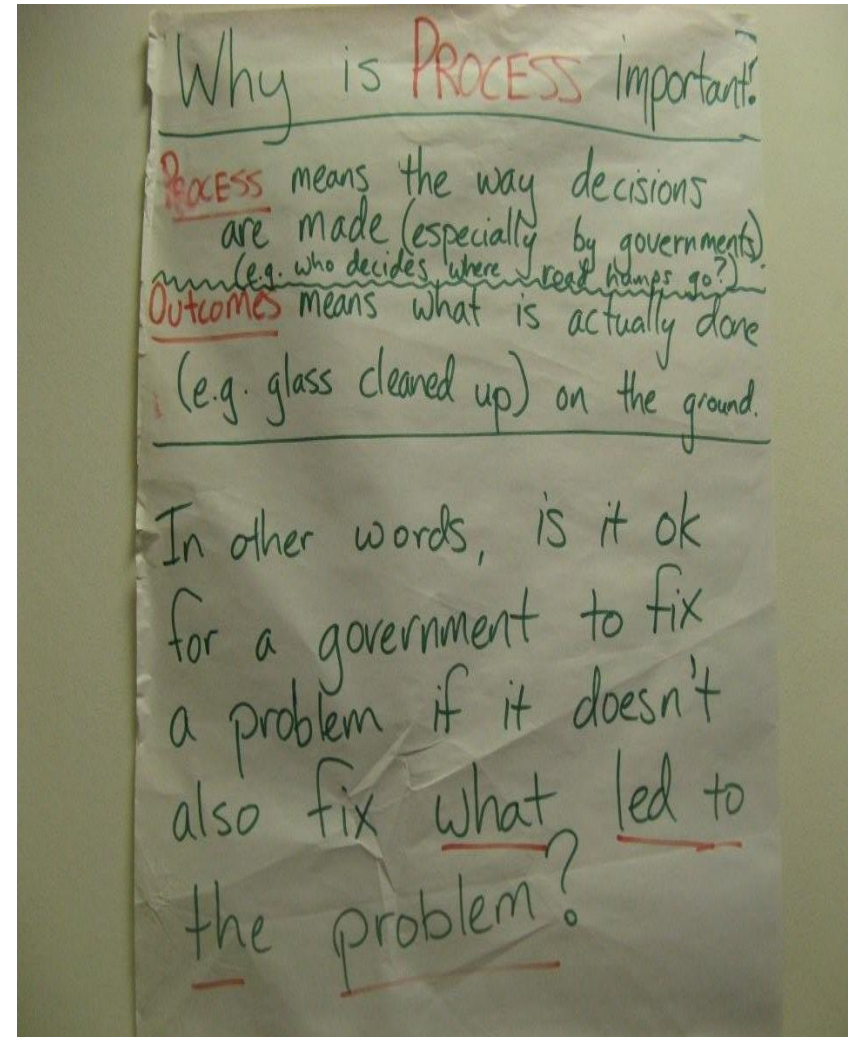 Why is PROCESS important?
PROCESS means the way decisions
are made (especially by governments).
(e.g. who decides where road humps go?)
Outcomes means what is actually done
(e.g. glass cleaned up) on the ground.
In other words, is it ok
for a government to fix
a problem if it doesn't
also fix what led to
the problem?